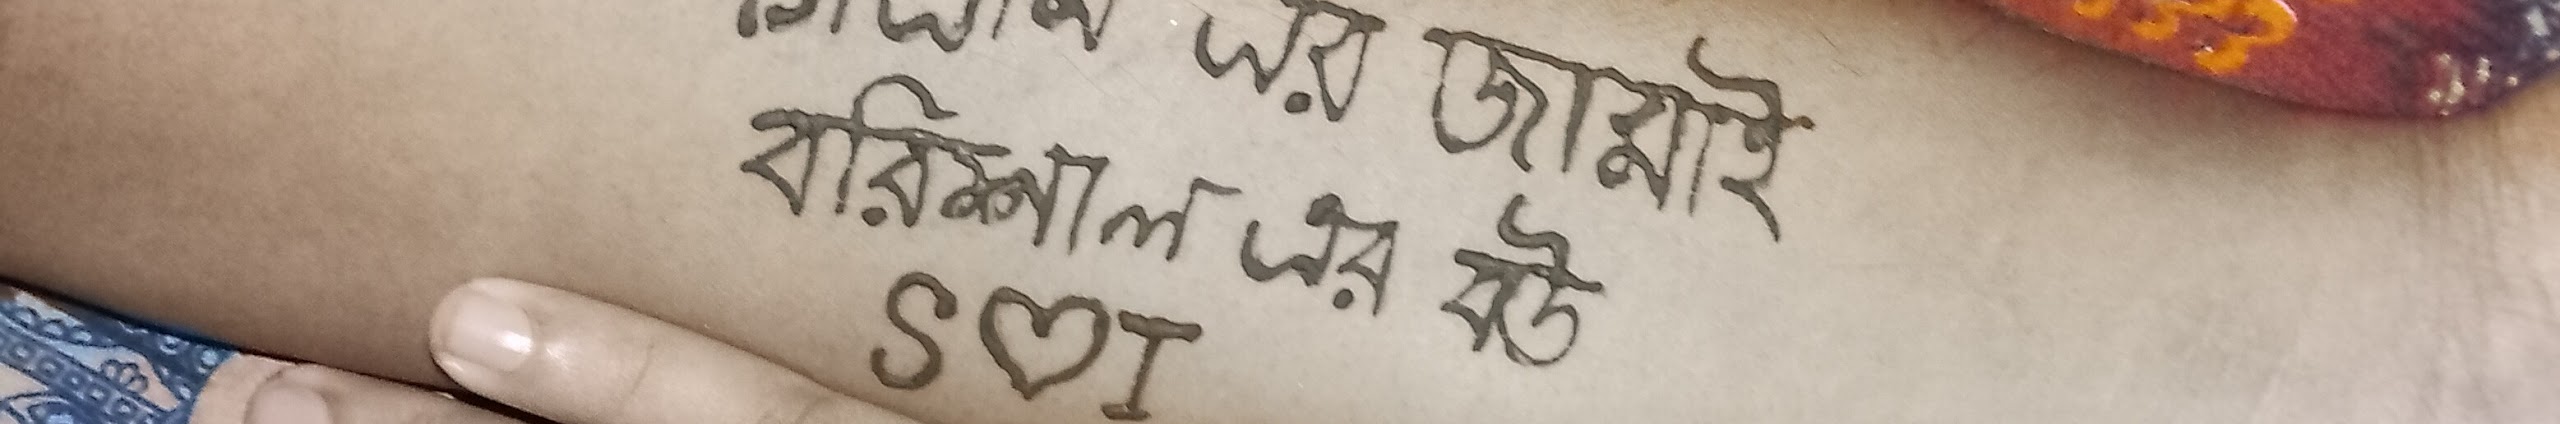 এর জামাই
বরিশাল এর বউ
S♡I